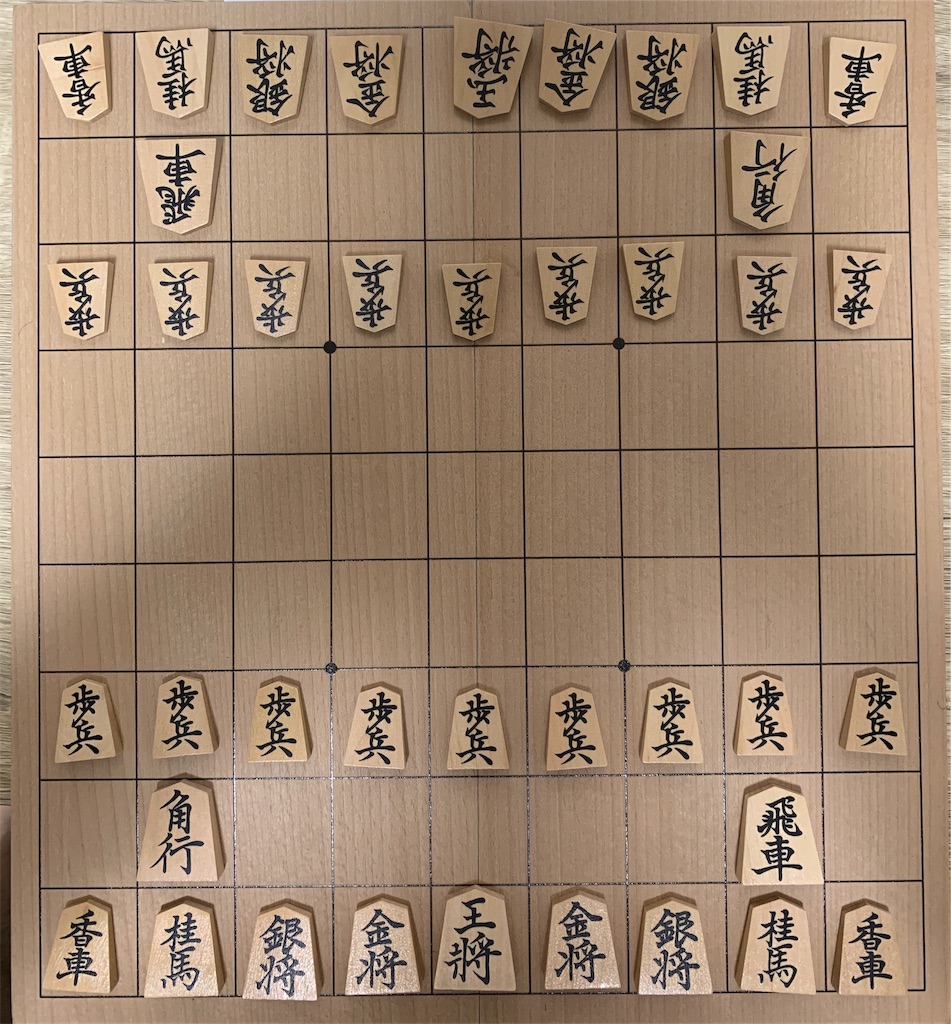 香車 桂馬 銀将 金将 玉将 金将 銀将 桂馬 香車
飛車 角行
歩兵 歩兵 歩兵 歩兵 歩兵 歩兵 歩兵 歩兵 歩兵
歩兵 歩兵 歩兵 歩兵 歩兵 歩兵 歩兵 歩兵 歩兵
角行 飛車
香車 桂馬 銀将 金将 王将 金将 銀将 桂馬 香車